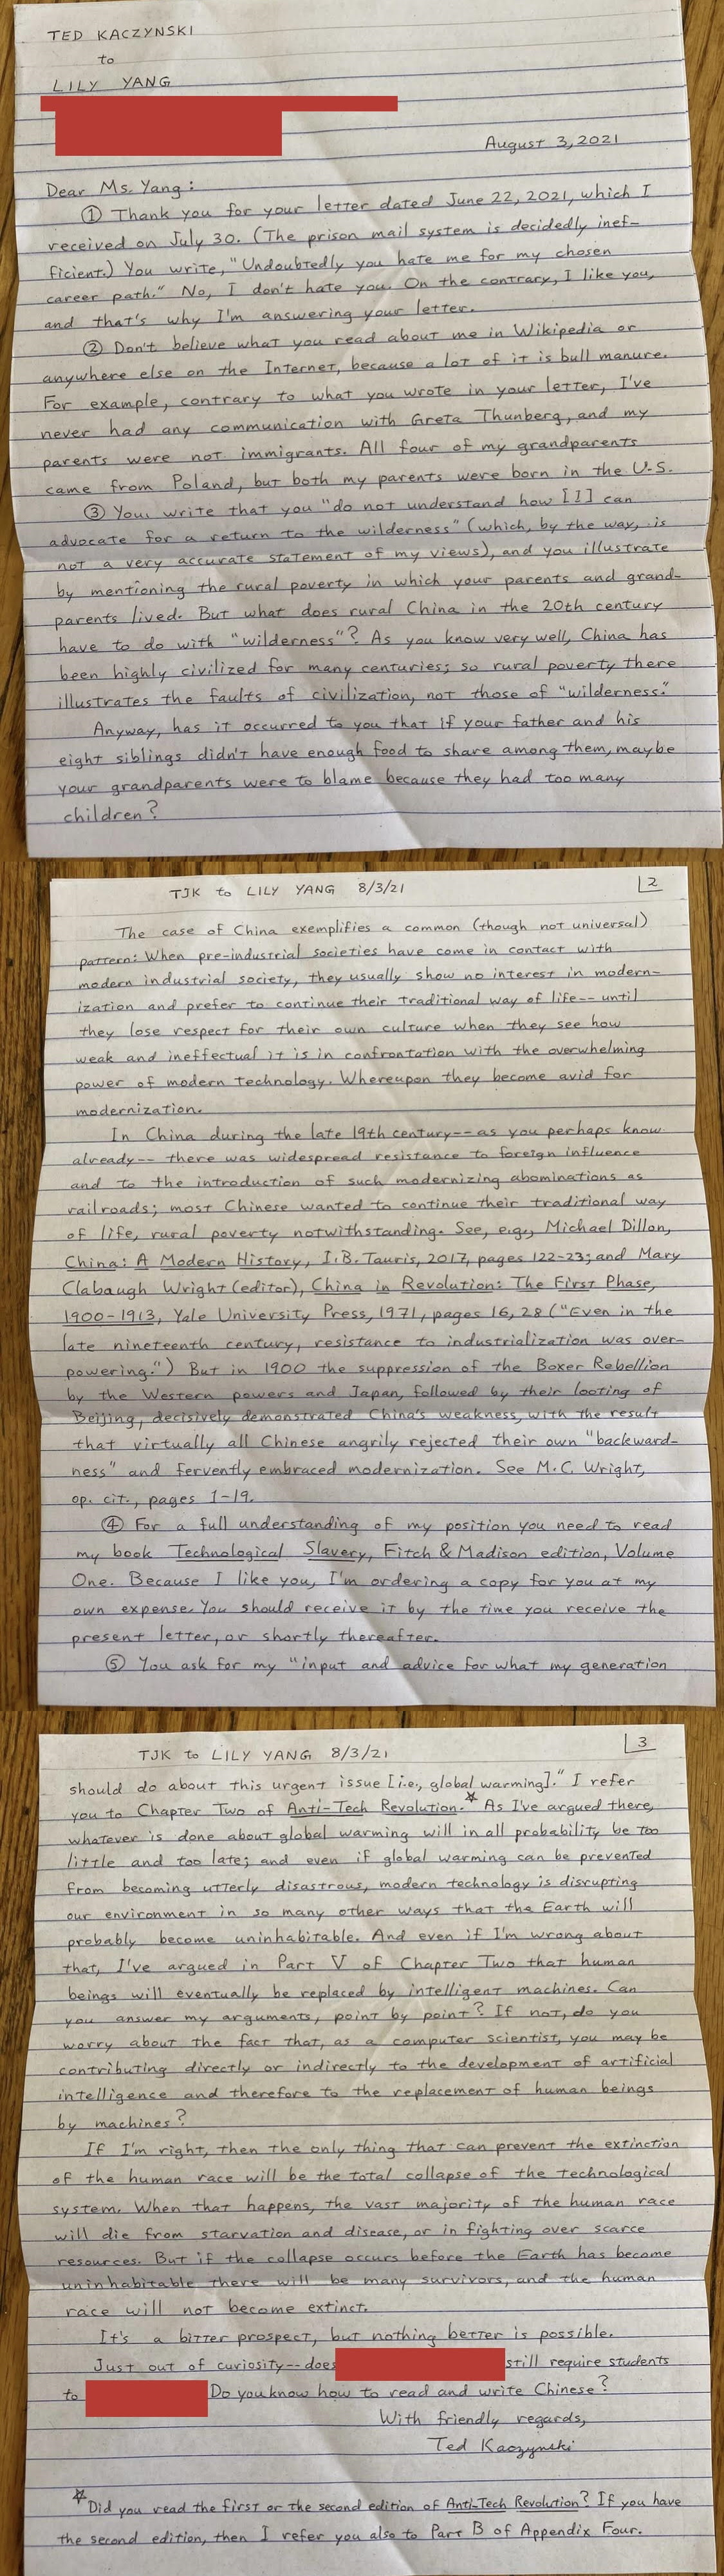 TED KACZYNSKI
to
LILY YANG
August 3, 2021
Dear Ms. Yang:
① Thank you for your letter dated June 22, 2021, which I
received on July 30. (The prison mail system is decidedly inef-
ficient.) You write, "Undoubtedly you hate me for my chosen
career path." No, I don't hate you. On the contrary, I like you,
and that's why I'm answering your letter.
② Don't believe what you read about me in Wikipedia or
anywhere else on the Internet, because a lot of it is bull manure.
For example, contrary to what you wrote in your letter, I've
never had any communication with Greta Thunberg, and my
parents were not immigrants. All four of my grandparents
came from Poland, but both my parents were born in the U.S.
③ You write that you "do not understand how [I] can
advocate for a return to the wilderness" (which, by the way, is
not a very accurate statement of my views), and you illustrate
by mentioning the rural poverty in which your parents and grand-
parents lived. But what does rural China in the 20th century
have to do with "wilderness"? As you know very well, China has
been highly civilized for many centuries; so rural poverty there
illustrates the faults of civilization, not those of "wilderness."
Anyway, has it occurred to you that if your father and his
eight siblings didn't have enough food to share among them, maybe
your grandparents were to blame because they had too many
children?
TJK to LILY YANG 8/3/21 2
The case of China exemplifies a common (though not universal)
pattern: When pre-industrial societies have come in contact with
modern industrial society, they usually show no interest in modern-
ization and prefer to continue their traditional way of life-- until
they lose respect for their own culture when they see how
weak and ineffectual it is in confrontation with the overwhelming
power of modern technology. Whereupon they become avid for
modernization.
In China during the late 19th century-- as you perhaps know
already-- there was widespread resistance to foreign influence
and to the introduction of such modernizing abominations as
railroads; most Chinese wanted to continue their traditional way
of life, rural poverty notwithstanding. See, e.g., Michael Dillon,
China: A Modern History, I.B. Tauris, 2017, pages 122-23; and Mary
Clabaugh Wright (editor), China in Revolution: The First Phase,
1900-1913, Yale University Press, 1971, pages 16, 28 ("Even in the
late nineteenth century, resistance to industrialization was over-
powering.") But in 1900 the suppression of the Boxer Rebellion
by the Western powers and Japan, followed by their looting of
Beijing, decisively demonstrated China's weakness, with the result
that virtually all Chinese angrily rejected their own "backward-
ness" and fervently embraced modernization. See M.C. Wright,
op. cit., pages 1-19.
④ For a full understanding of my position you need to read
my book Technological Slavery, Fitch & Madison edition, Volume
One. Because I like you, I'm ordering a copy for you at my
own expense. You should receive it by the time you receive the
present letter, or shortly thereafter.
⑤ You ask for my "input and advice for what my generation
TJK to LILY YANG 8/3/21 3
should do about this urgent issue [i.e., global warming]." I refer
you to Chapter Two of Anti-Tech Revolution.* As I've argued there,
whatever is done about global warming will in all probability be too
little and too late; and even if global warming can be prevented
from becoming utterly disastrous, modern technology is disrupting
our environment in so many other ways that the Earth will
probably become uninhabitable. And even if I'm wrong about
that, I've argued in Part V of Chapter Two that human
beings will eventually be replaced by intelligent machines. Can
you answer my arguments, point by point? If not, do you
worry about the fact that, as a computer scientist, you may be
contributing directly or indirectly to the development of artificial
intelligence and therefore to the replacement of human beings
by machines?
If I'm right, then the only thing that can prevent the extinction
of the human race will be the total collapse of the technological
system. When that happens, the vast majority of the human race
will die from starvation and disease, or in fighting over scarce
resources. But if the collapse occurs before the Earth has become
uninhabitable there will be many survivors, and the human
race will not become extinct.
It's a bitter prospect, but nothing better is possible.
Just out of curiosity-- does still require students
to Do you know how to read and write Chinese?
With friendly regards,
Ted Kaczynski
*Did you read the first or the second edition of Anti-Tech Revolution? If you have
the second edition, then I refer you also to Part B of Appendix Four.